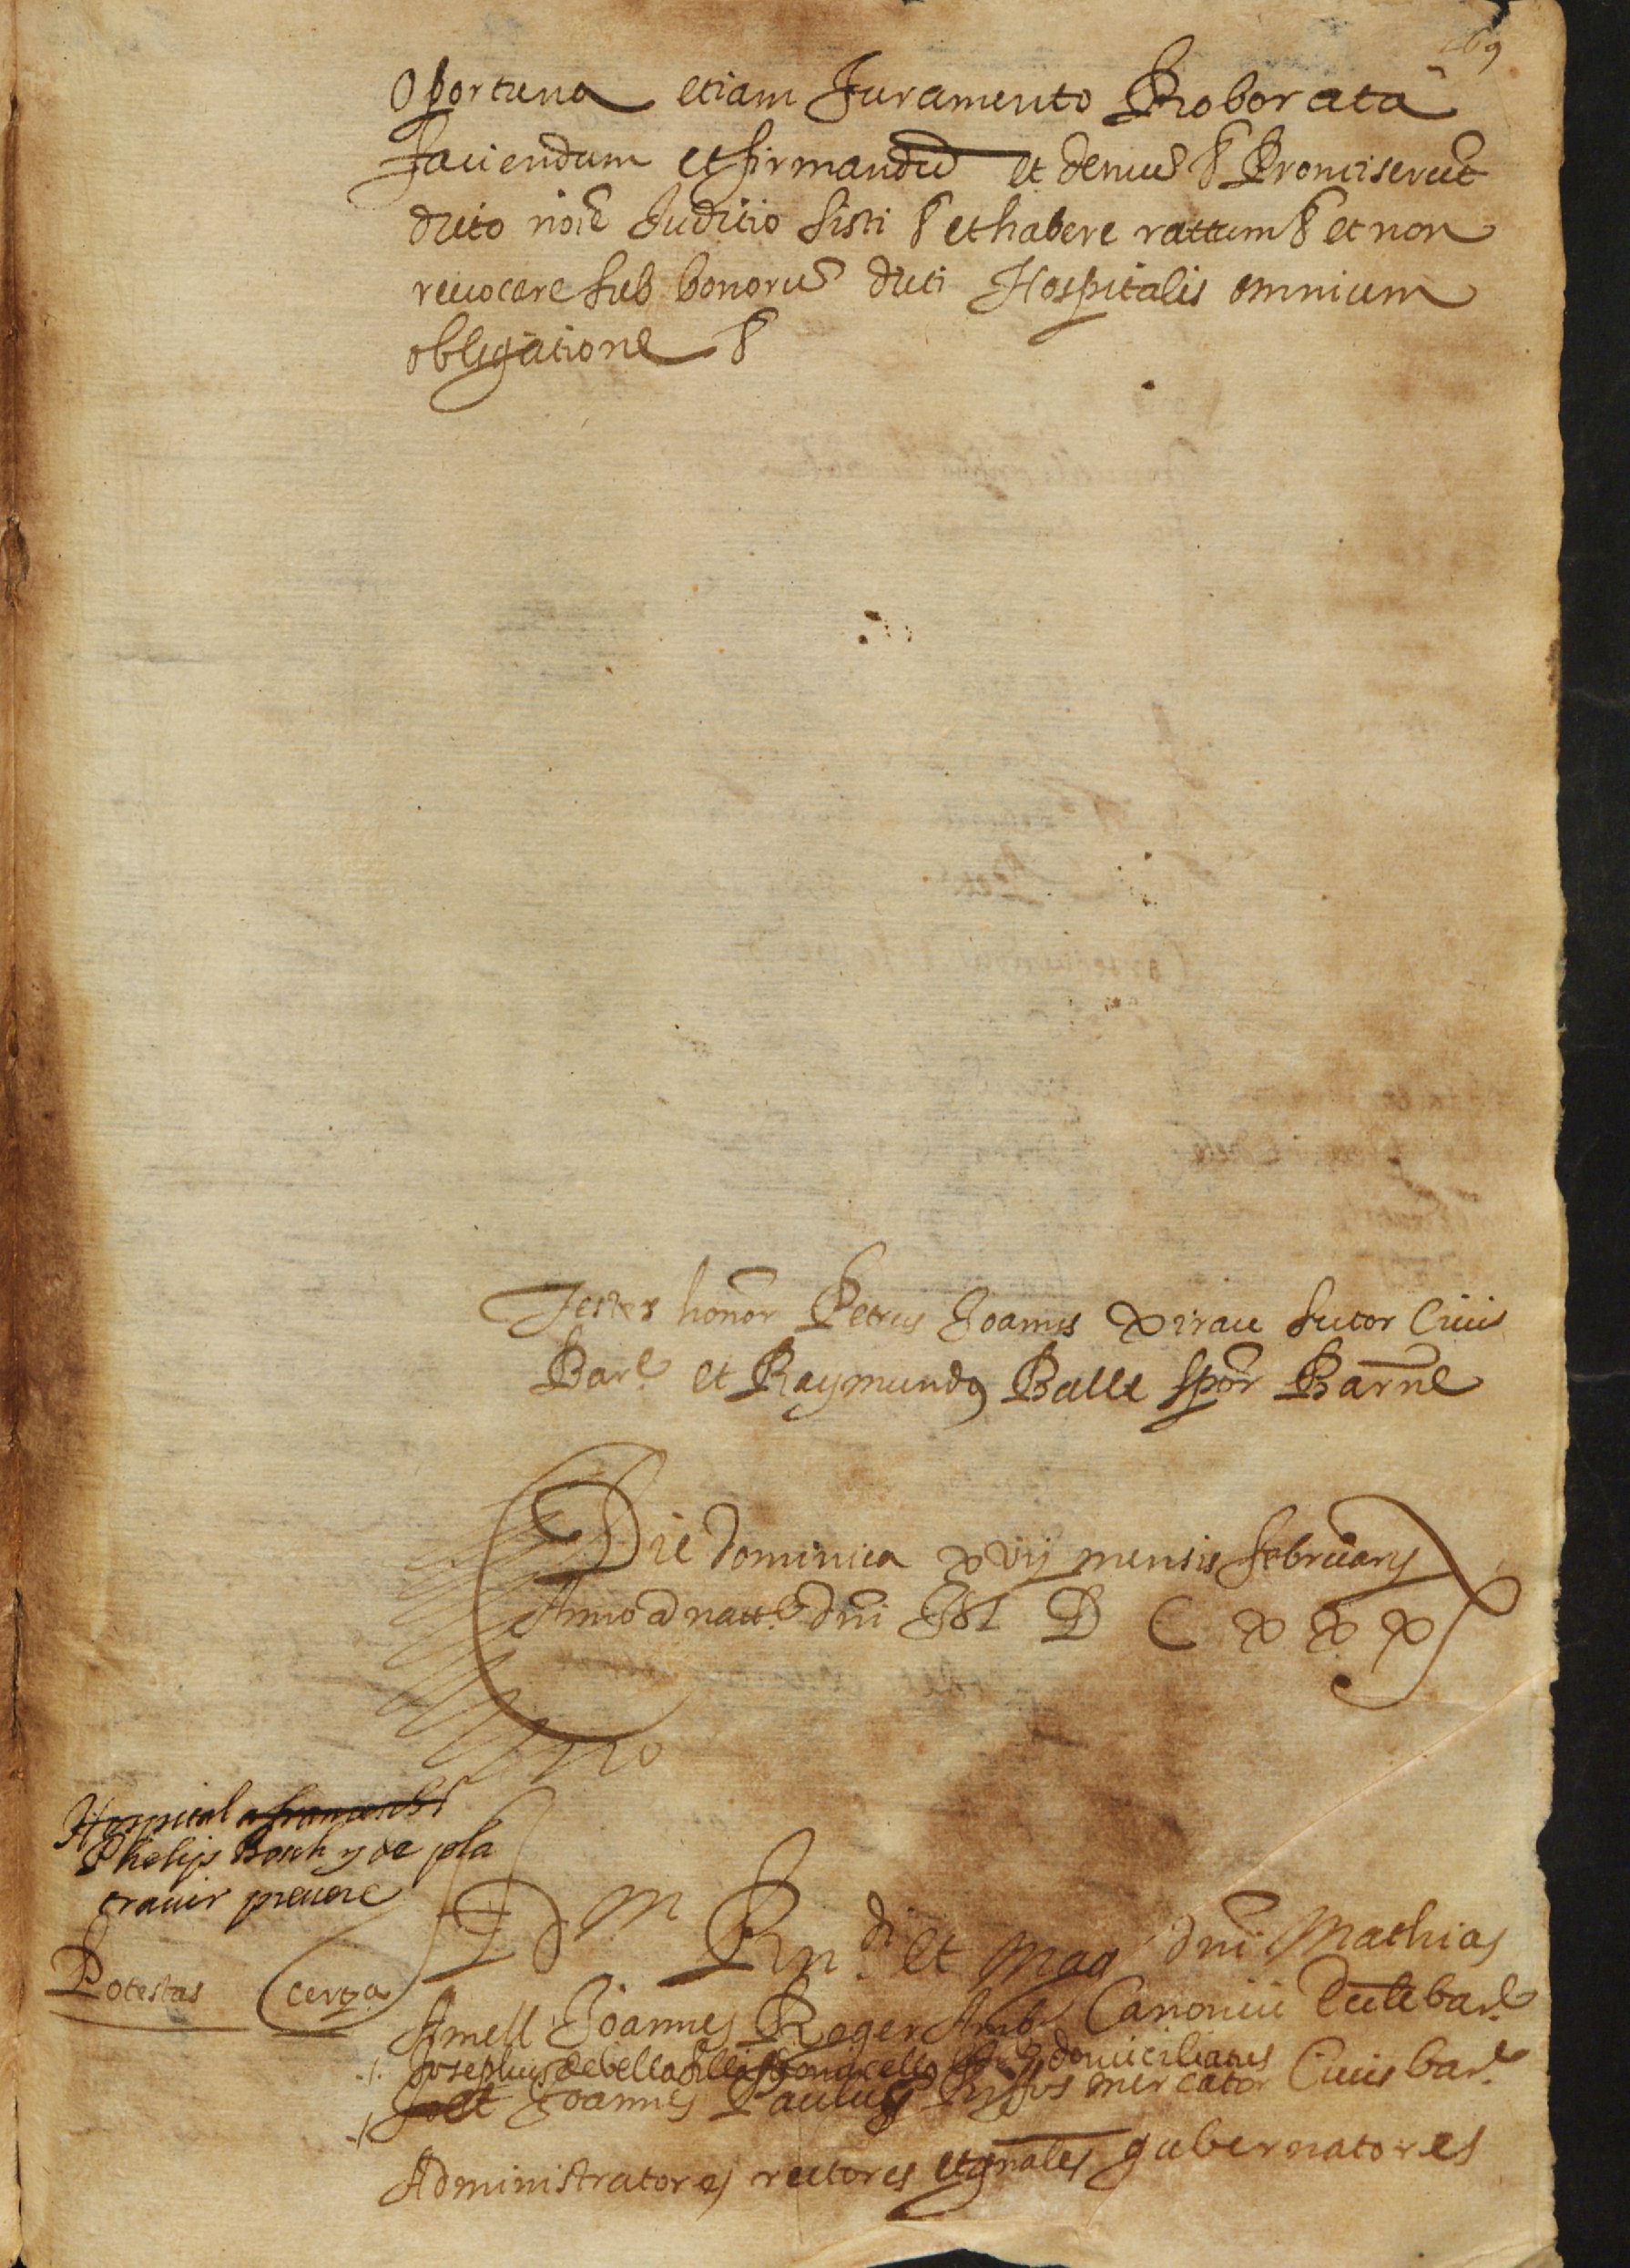 169
Oportuna etiam Juramento Roborata
faciendum et firmandũ et demũ & Promiserũt
dicto noĩe Juditio sisti & et habere rattum & et non
reuocare sub bonorũ dicti Hospitalis omnium
obligatione &
Testes honor Petrus Joannes Xirau sutor Ciuis
Barᵉ et Raymundus Batlle spõr Barnᵉ
Die dominica xvij mensis februarij
Anno a natᵉ dni M D C x x x
Hospital
Phelip Bosch y de pla
prevere
Potestas
Dm Rndi et Mag dni Mathias
Amell Joannes Roger Amb Canonici barᵉ
Josephus de bellafilla domicellus domiciliatus
et Joannes Paulus mercator Ciuis barᵉ
Administratores rectores et gnales gubernatores